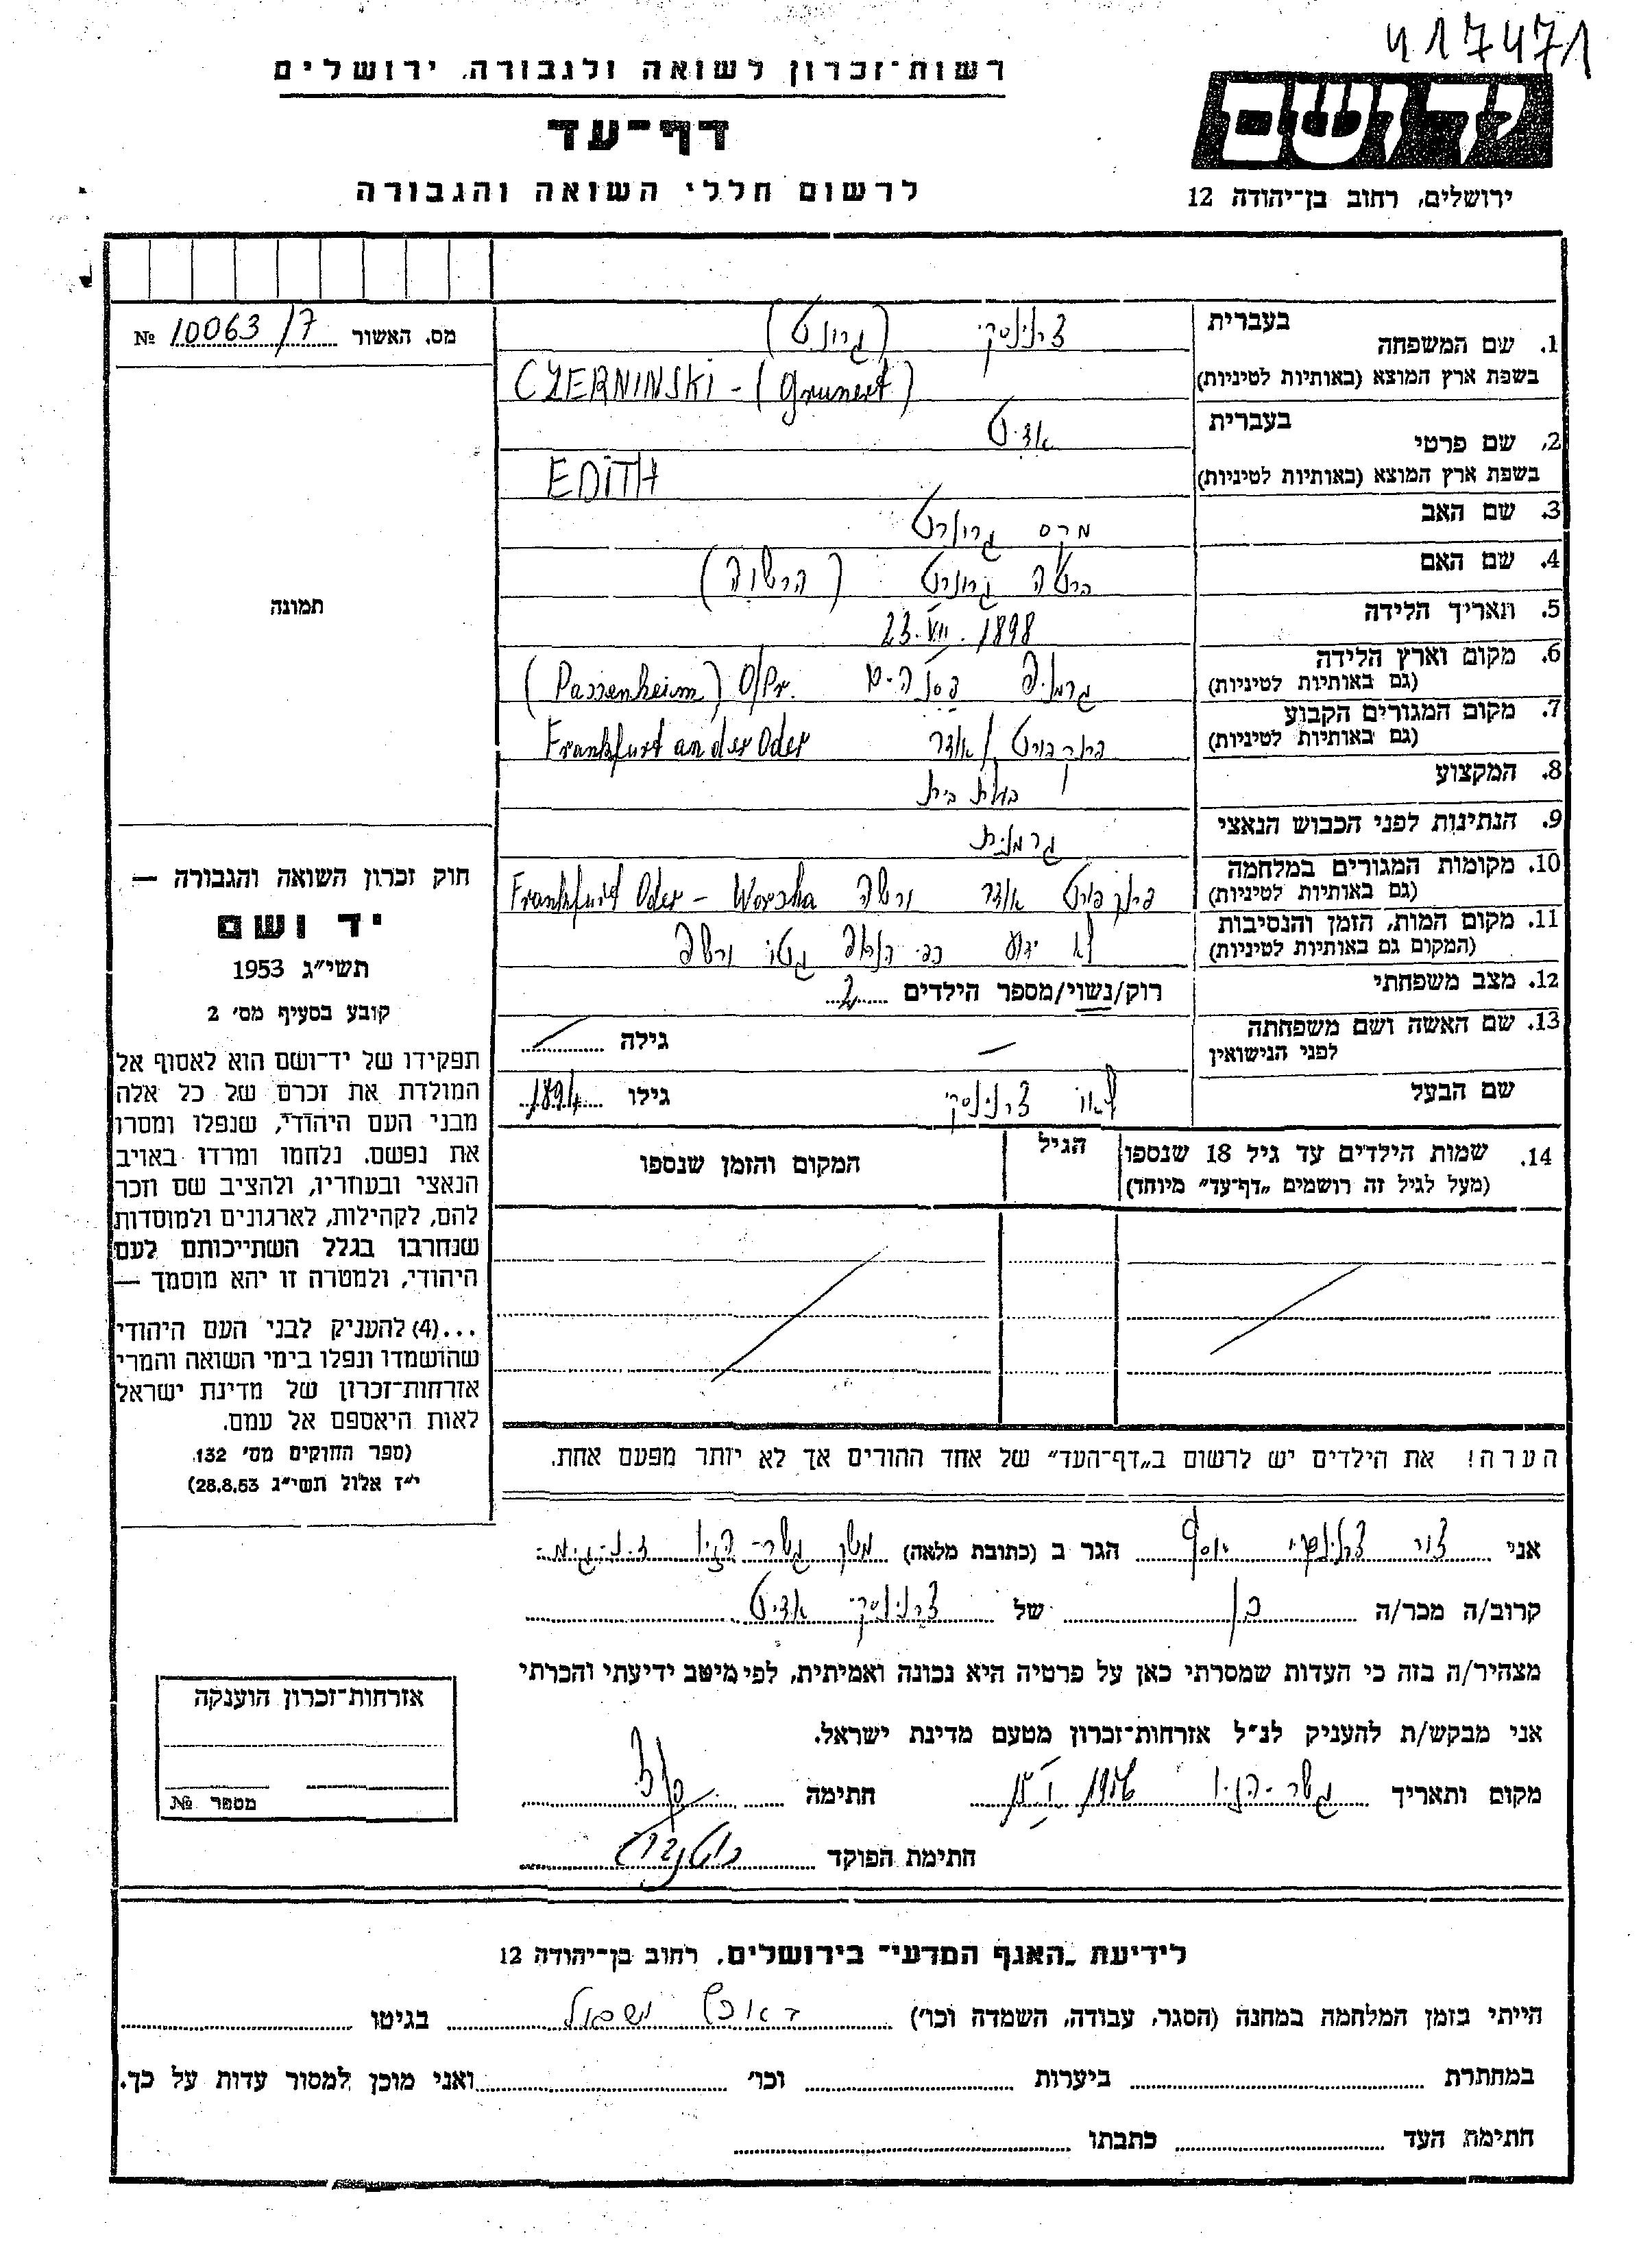 417471
רשות־זכרון לשואה ולגבורה, ירושלים
דף־עד
לרשום חללי השואה והגבורה
יד ושם
ירושלים, רחוב בן־יהודה 12
מס. האשור № 10063/7
תמונה
1. שם המשפחה בעברית צרנינסקי (גרונרט)
בשפת ארץ המוצא (באותיות לטיניות) CZERNINSKI - (Grunert)
2. שם פרטי בעברית אדיט
בשפת ארץ המוצא (באותיות לטיניות) EDITH
3. שם האב מרקס גרונרט
4. שם האם ברטה גרונרט (הרשוה)
5. תאריך הלידה 23.VII.1898
6. מקום וארץ הלידה (גם באותיות לטיניות) גרמניה פסנהים (Passenheim) O/Pr.
7. מקום המגורים הקבוע (גם באותיות לטיניות) פרנקפורט/אודר Frankfurt an der Oder
8. המקצוע בעלת בית
9. הנתינות לפני הכבוש הנאצי גרמנית
10. מקומות המגורים במלחמה (גם באותיות לטיניות) פרנקפורט אודר ורשה Frankfurt Oder - Worscha
11. מקום המות, הזמן והנסיבות (המקום גם באותיות לטיניות) לא ידוע כפי הנראה גטו ורשה
12. מצב משפחתי רוק/נשוי/מספר הילדים 2
13. שם האשה ושם משפחתה לפני הנישואין — גילה
שם הבעל לאו צרנינסקי גילו 1894
14. שמות הילדים עד גיל 18 שנספו הגיל המקום והזמן שנספו
(מעל לגיל זה רושמים „דף־עד" מיוחד)
הערה! את הילדים יש לרשום ב„דף־העד" של אחד ההורים אך לא יותר מפעם אחת.
חוק זכרון השואה והגבורה —
יד ושם
תשי״ג 1953
קובע בסעיף מס׳ 2
תפקידו של יד־ושם הוא לאסוף אל
המולדת את זכרם של כל אלה
מבני העם היהודי, שנפלו ומסרו
את נפשם, נלחמו ומרדו באויב
הנאצי ובעוזריו, ולהציב שם וזכר
להם, לקהילות, לארגונים ולמוסדות
שנחרבו בגלל השתייכותם לעם
היהודי, ולמטרה זו יהא מוסמך —
...(4) להעניק לבני העם היהודי
שהושמדו ונפלו בימי השואה והמרי
אזרחות־זכרון של מדינת ישראל
לאות היאספם אל עמם.
(ספר החוקים מס׳ 132,
י״ז אלול תשי״ג 28.8.53)
אני צור צרנינסקי יוסף הגר ב (כתובת מלאה) משק גשר־הזיו
קרוב/ה מכר/ה בן של צרנינסקי אדיט
מצהיר/ה בזה כי העדות שמסרתי כאן על פרטיה היא נכונה ואמיתית, לפי מיטב ידיעתי והכרתי
אני מבקש/ת להעניק לנ״ל אזרחות־זכרון מטעם מדינת ישראל.
מקום ותאריך גשר־הזיו חתימה
חתימת הפוקד
אזרחות־זכרון הוענקה
מספר №
לידיעת „האגף המדעי" בירושלים, רחוב בן־יהודה 12
הייתי בזמן המלחמה במחנה (הסגר, עבודה, השמדה וכו׳) בגיטו
במחתרת ביערות וכו׳ ואני מוכן למסור עדות על כך.
חתימת העד כתבתו